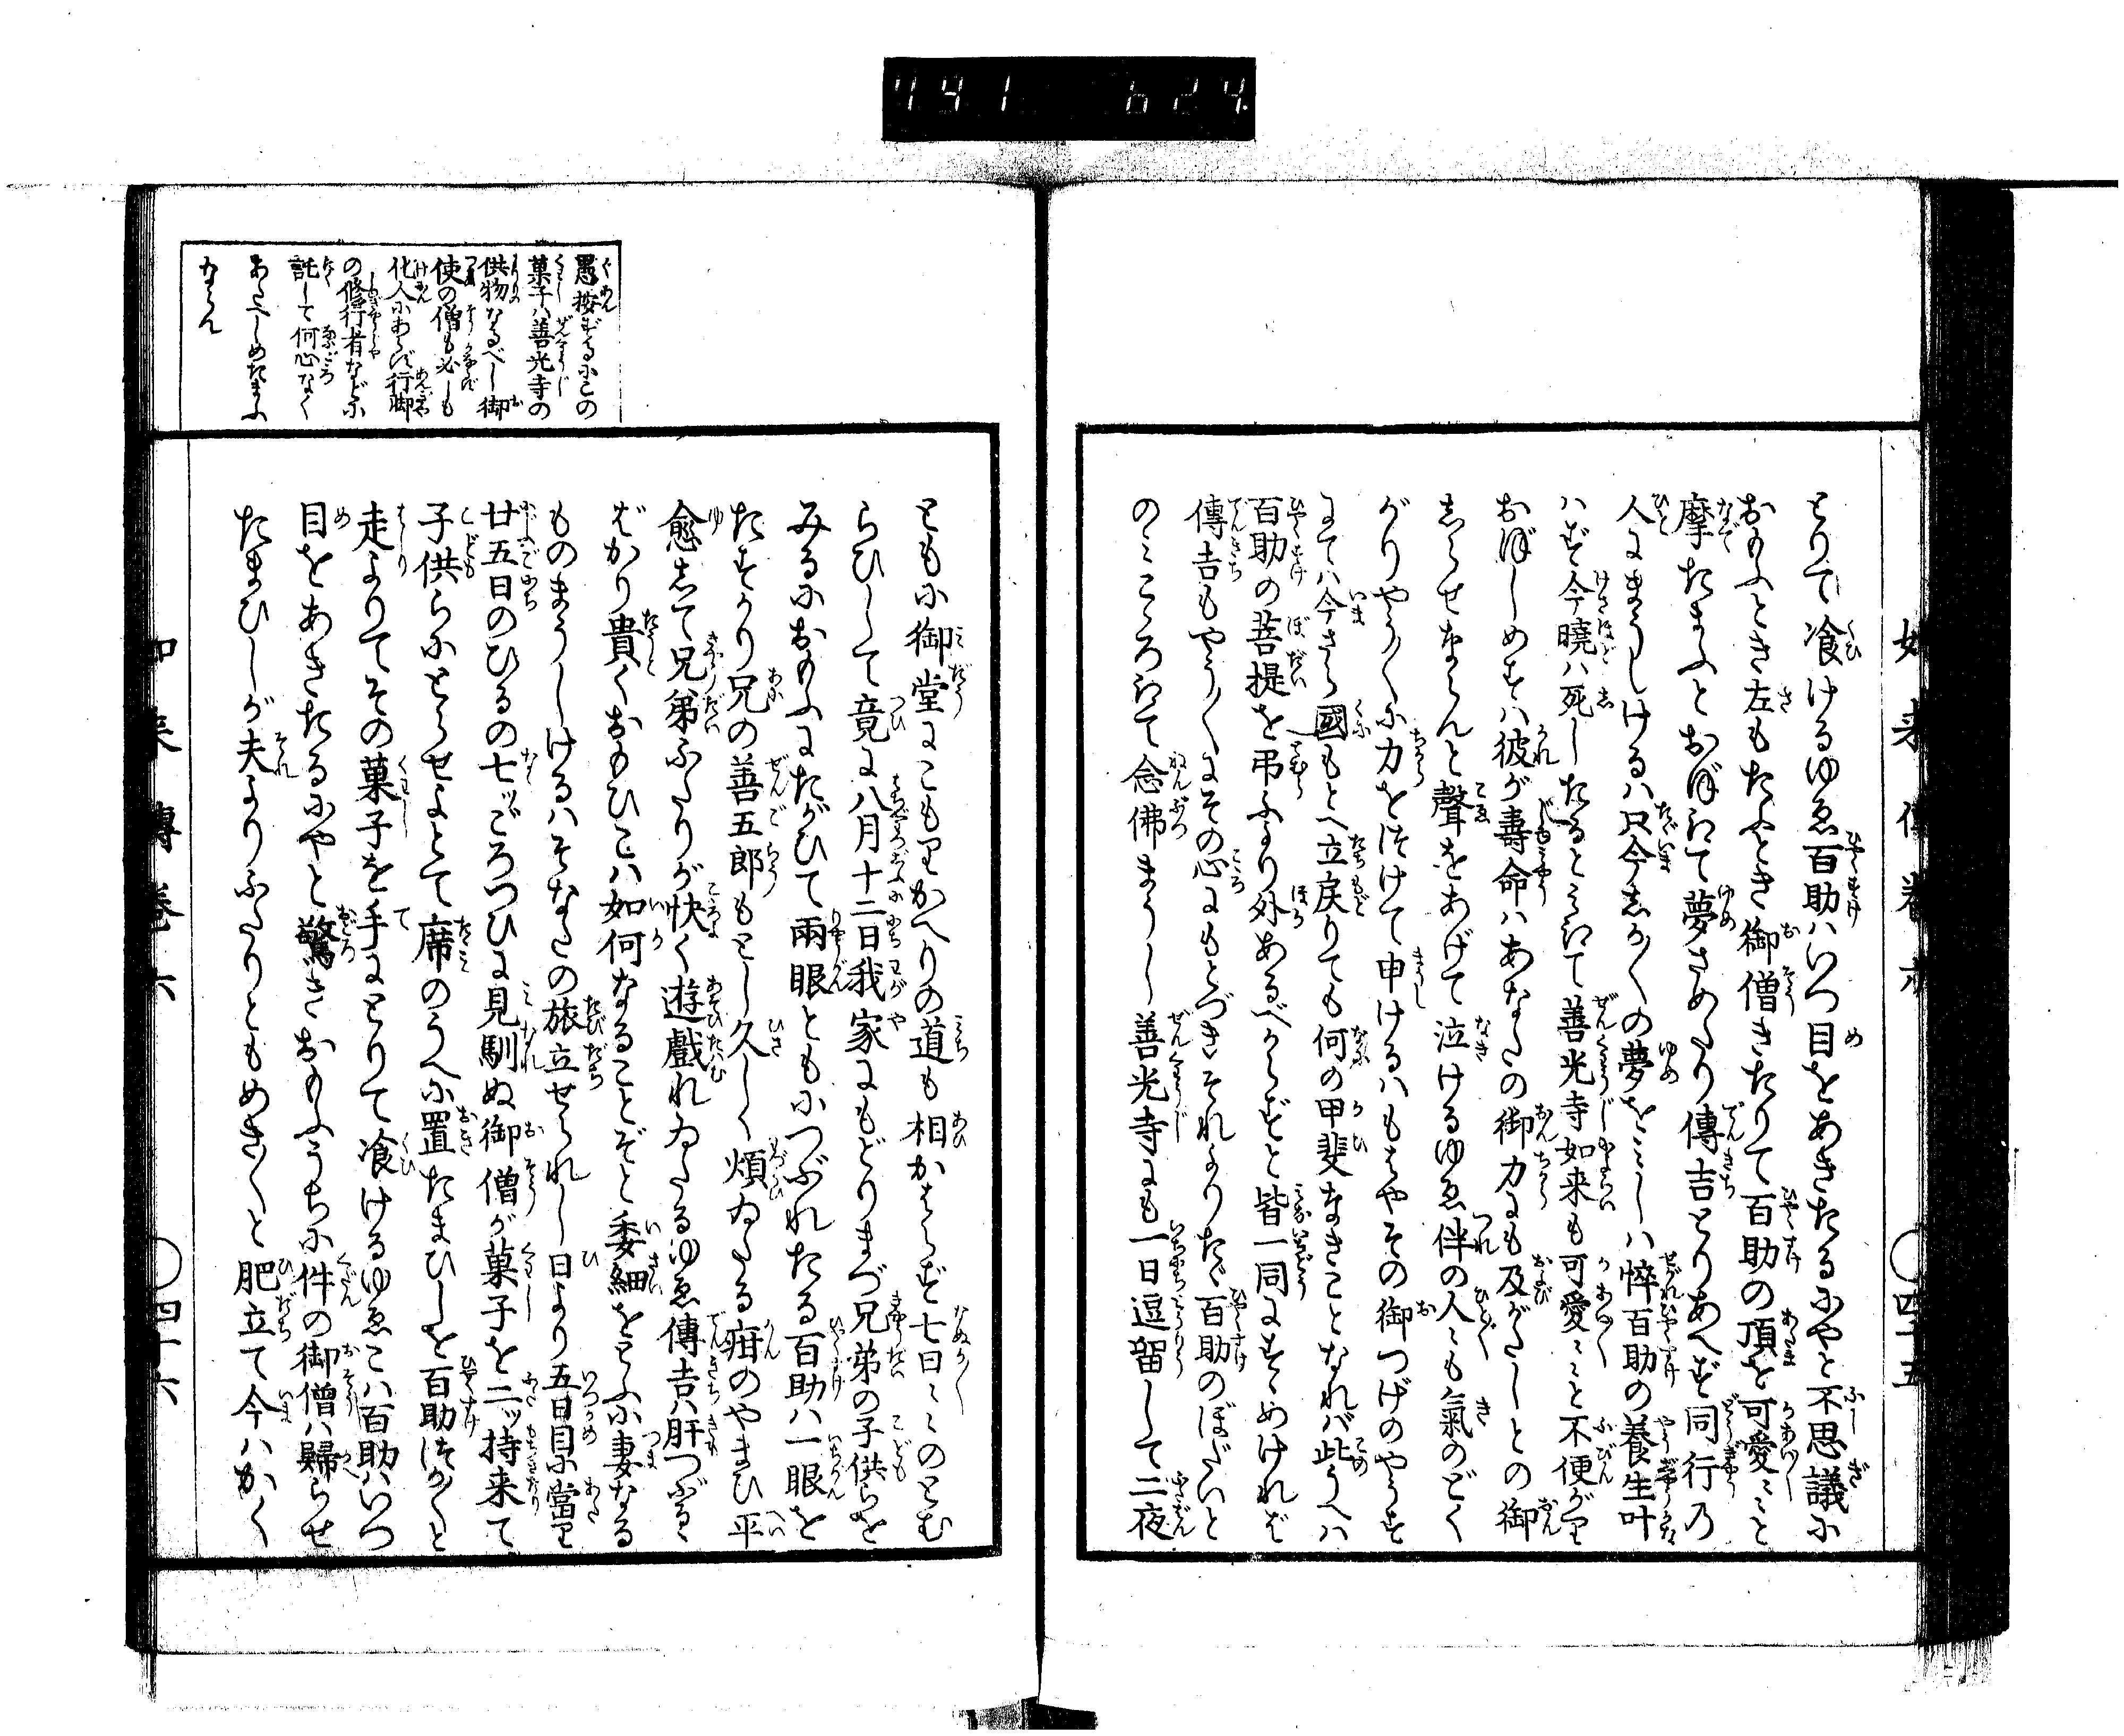 791 624
如来傳巻六 ○四十五
とりて飡けるゆゑ百助ハいつ目をあきたるにやと不思議に
おもふとき左もたふとき御僧きたりて百助の頂を可愛〻〻と
摩たまふとおぼえて夢さめたり傳吉とりあへず同行乃
人にまうしけるハ只今しか〳〵の夢をみしハ悴百助の養生叶
ハず今暁ハ死したるとみえて善光寺如来も可愛〻〻と不便がり
おぼしめせハ彼が壽命ハあなたの御力にも及がたしとの御
しらせならんと聲をあげて泣けるゆゑ伴の人〻も氣のどく
がりやう〳〵に力をつけて申けるハもはやその御つげのやうす
にてハ今さら國もとへ立戻りても何の甲斐なきことなれバ此うへハ
百助の菩提を弔ふより外あるべからずと皆一同にすゝめければ
傳吉もやう〳〵にその心にもとづきそれよりたゞ百助のぼだいと
のみこゝろえて念佛まうし〳〵善光寺にも一日逗留して二夜
ともに御堂にこもりかへりの道も相かはらず七日〻〻のとむ
らひして竟に八月十二日我家にもどりまづ兄弟の子供らを
みるにおもふにたがひて兩眼ともにつぶれたる百助ハ一眼を
たすかり兄の善五郎もとし久しく煩ゐたる疳のやまひ平
愈して兄弟ふたりが快く遊戯れゐたるゆゑ傳吉ハ肝つぶるゝ
ばかり貴くおもひこハ如何なることぞと委細をとふに妻なる
ものまうしけるハそなたの旅立せられし日より五日目に當り
廿五日のひるの七ッごろつひに見馴ぬ御僧が菓子を二ッ持来て
子供らにとらせよとて席のうへに置たまひしを百助つか〳〵と
走よりてその菓子を手にとりて飡けるゆゑこハ百助ハいつ
目をあきたるにやと驚きおもふうちに件の御僧ハ歸らせ
たまひしが夫よりふたりともめき〳〵と肥立て今ハかく
愚按ずるにこの
菓子ハ善光寺の
供物なるべし御
使の僧も必しも
化人にあらず行脚
の修行者などに
託して何心なく
あたへしめたまふ
ならん
如来傳巻六 ○四十六